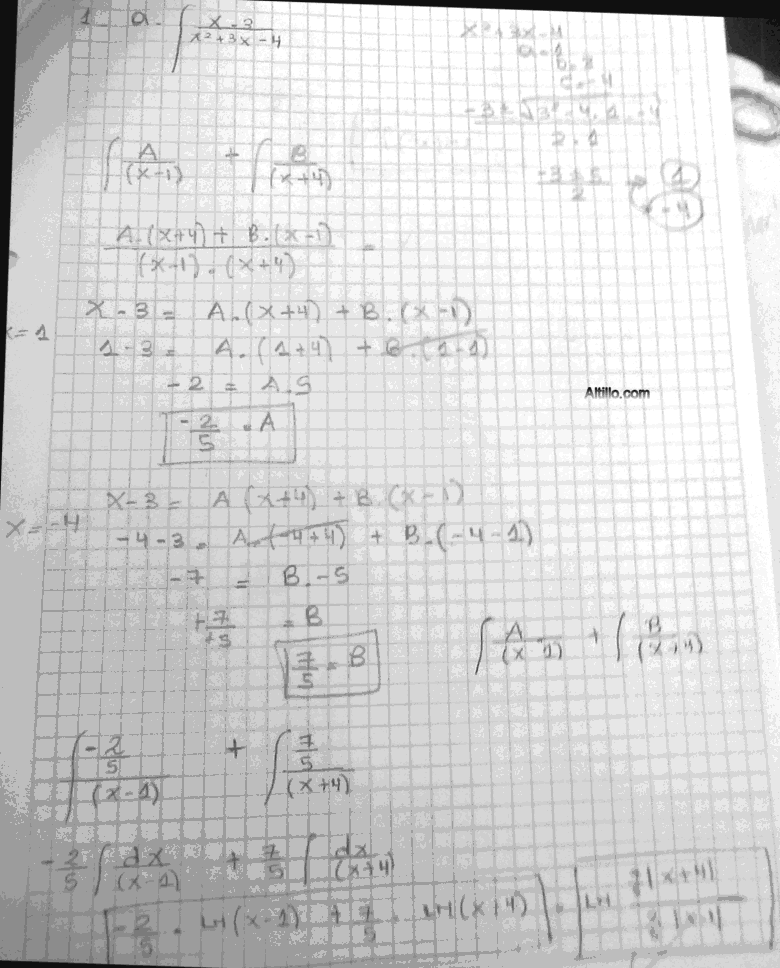 1- a- ∫ x-3 / x²+3x-4
x²+3x-4
a=1
b=3
c=-4
-3±√3²-4.1.-4 / 2.1
-3±5 / 2 → 1
-4
∫ A/(x-1) + ∫ B/(x+4)
A.(x+4) + B.(x-1) / (x-1).(x+4) =
x-3 = A.(x+4) + B.(x-1)
x=1 1-3 = A.(1+4) + B.(1-1)
-2 = A.5
-2/5 = A
x-3 = A(x+4) + B.(x-1)
x=-4 -4-3 = A.(-4+4) + B.(-4-1)
-7 = B.-5
+7/+5 = B
7/5 = B
∫ A/(x-1) + ∫ B/(x+4)
∫ -2/5 / (x-1) + ∫ 7/5 / (x+4)
-2/5 ∫ dx/(x-1) + 7/5 ∫ dx/(x+4)
-2/5 . LN(x-1) + 7/5 . LN(x+4) = LN |x+4| / |x-1|
Altillo.com